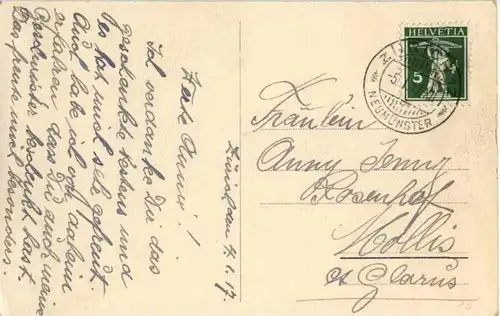 Zürich, den 4.1.17.
Liebe Anni!
Ich verdanke Dir das
geschenkte bestens und
es hat mich sehr gefreut.
Auch habe ich von
erfahren dass Du auch meine
Geschwister beschenkt hast.
Das freute mich besonders.
HELVETIA
5
NEUMÜNSTER
Fräulein
Anny Jenny
Rosenhof
Mollis
Ct. Glarus